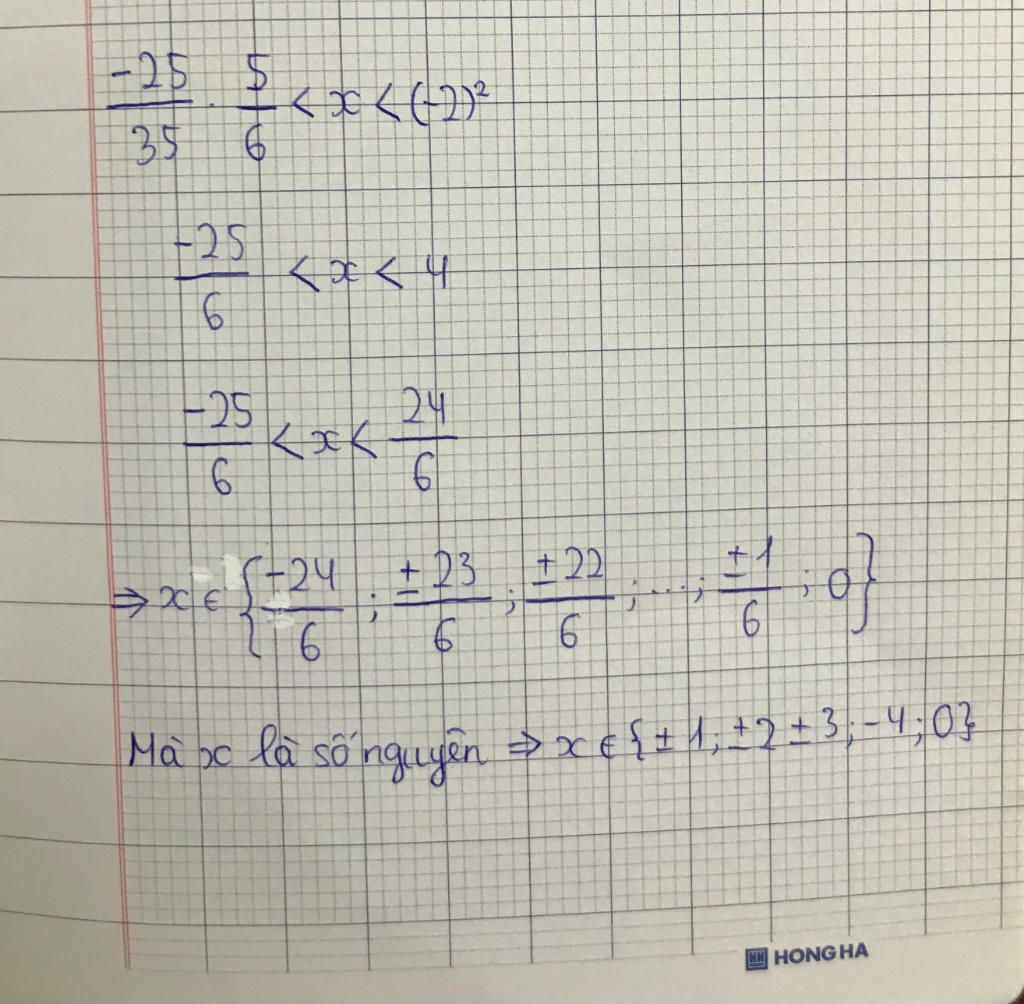 -25/35 · 5/6 < x < (-2)²
-25/6 < x < 4
-25/6 < x < 24/6
⇒ x ∈ {-24/6 ; ±23/6 ; ±22/6 ; ... ; ±1/6 ; 0}
Mà x là số nguyên ⇒ x ∈ {±1 ; ±2 ±3 ; -4 ; 0}
HONG HA